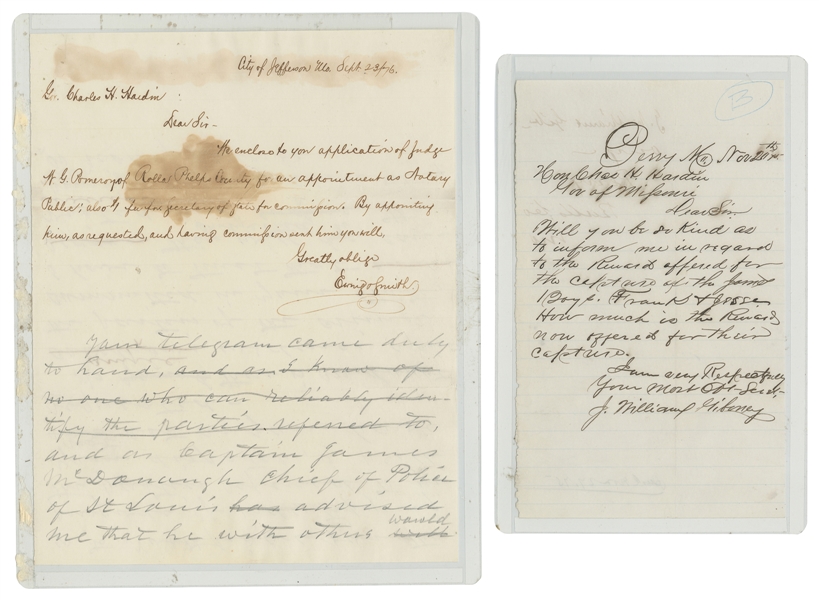 City of Jefferson Mo. Sept 23/76.
Gov. Charles H. Hardin :
Dear Sir -
We enclose to you application of Judge
W. G. Pomeroy of Rolla Phelps County for an appointment as Notary
Public; also $ fee for secretary of State for commission. By appointing
him, as requested, and having commission sent him you will,
Greatly oblige
Ewing & Smith
telegram came duly
to hand, and as I know of
no one who can reliably iden-
tify the parties referred to,
and as Captain James
McDonough chief of Police
of St Louis has advised
me that he with others would
B
Perry Mo Nov 20th
Hon Chas H. Hardin
Gov of Missouri
Dear Sir
Will you be so kind as
to inform me in regard
to the Reward offered for
the capture of the James
Boys. Frank & Jesse
How much is the Reward
now offered for their
capture.
I am very Respectfully
Your Most Obt Servt
J. William Gibney